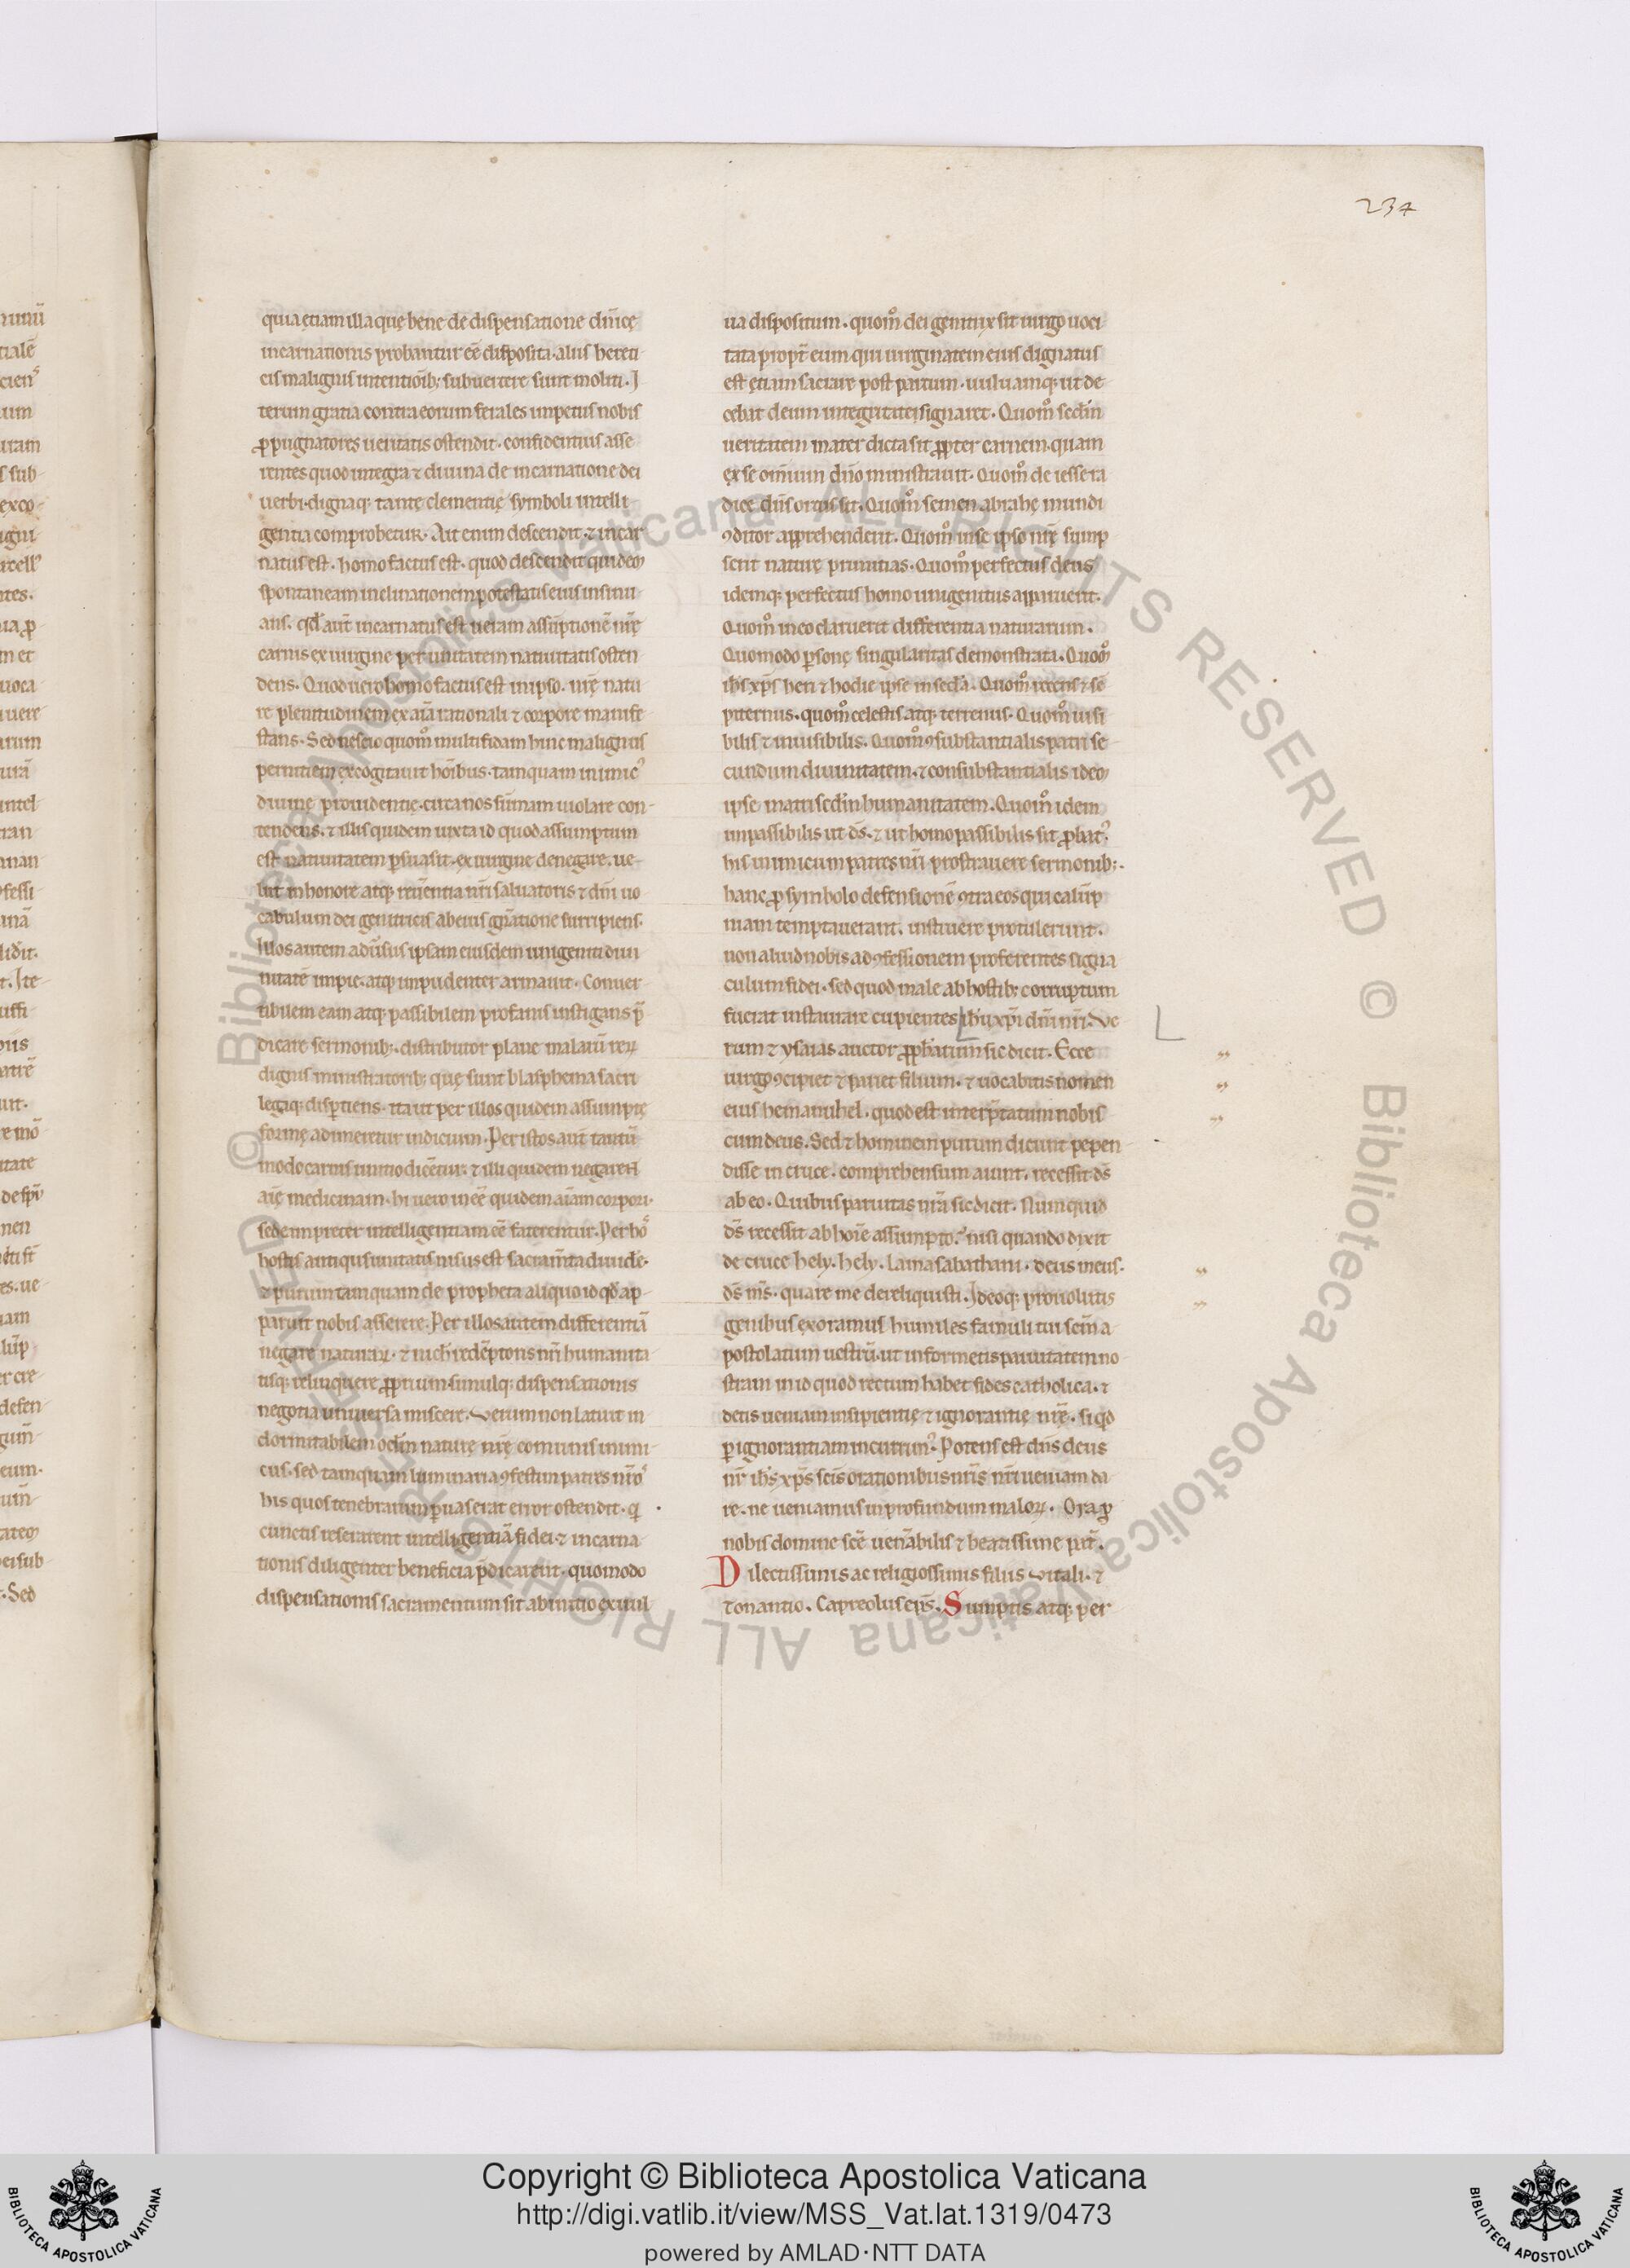 234
quia etiam illa quę bene de dispensatione dn̄icę
incarnationis probantur eē disposita. aliis hereti
cis malignis intentiōib; subuertere sunt moliti. I
terum gratia contra eorum ferales impetus nobis
ꝓpugnatores ueritatis ostendit. confidentius asse
rentes quod integra ⁊ diuina de incarnatione dei
uerbi. dignaq; tantę clementię symboli intelli
gentia comprobetur. Ait enim descendit. ⁊ incar
natus est. homo factus est. quod descendit quidem
spontaneam inclinationem potestatis eius insinu
ans. qd̄ aūt incarnatus est ueram assūptionē nr̄ę
carnis ex uirgine per unitatem natiuitatis osten
dens. Quod uero homo factus est in ipso. nr̄ę natu
re plenitudinem ex aīa rationali ⁊ corpore manife
stans. Sed nescio quom̊ multifidam hinc malignus
pernitiem excogitauit hōibus. tamquam inimicꝰ
diuinę prouidentię. circa nos sūmam uiolare con-
tendens. ⁊ illis quidem iuxta id quod assumptum
est natiuitatem p̱suasit. ex uirgine denegare. ue-
lut in honore atq; reūentia nr̄i saluatoris ⁊ dn̄i uo
cabulum dei genitricis ab eius gn̄atione surripiens.
Illos autem adūsus ipsam eiusdem unigeniti diui
nitatē impie. atq; impudenter armauit. Conuer-
tibilem eam atq; passibilem profanis instigans p̄
dicare sermonib;. distributor plane malaꝝ rerꝝ
dignis ministratorib; quę sunt blasphema sacri
legaq; disp̱tiens. ita ut per illos quidem assumptę
formę adimeretur indicium. Per istos aūt tantū
modo carnis unitio dicētur. ⁊ illi quidem negarent
aīę medicinam. hi uero ineē quidem aīam corpori.
sed eam preter intelligentiam eē faterentur. Per hos̊
hostis antiqus unitatis nisus est sacram̄ta diuide.
⁊ purum tamquam de propheta aliquo id qd̄ ap-
paruit nobis asserere. Per illos autem differentiā
negare naturaꝝ. ⁊ nichil redēptoris nr̄i humanita
tisq; relinquere ꝓprium. simulq; dispensationis
negotia uniuersa miscere. Verum non latuit in
dormitabilem od̄m naturę nr̄ę comunis inimi-
cus. sed tamquam luminaria ꝯfestim patres nr̄os̊
his quos tenebrarum p̱uaserat error ostendit. q̱
cunctis reserarent intelligentiā fidei. ⁊ incarna
tionis diligenter beneficia p̄dicarent. quomodo
dispensationis sacramentum sit ab initio ex uul
ua dispositum. quom̊ dei genitrix sit uirgo uoci
tata propt̄ eum qui uirginatem eius dignatus
est etiam sacrare post partum. uuluamq; ut de
cebat deum integritatis signaret. Quom̊ sed̄m
ueritatem mater dicta sit ꝓpter carnem. quam
ex se omnium dn̄o ministrauit. Quom̊ de iesse ra
dice dn̄s ortus sit. Quom̊ semen abrahę mundi
ꝯditor apprehenderit. Quom̊ in se ipso nr̄ę sump
serit naturę primitias. Quom̊ perfectus deus
idemq; perfectus homo unigenitus apparuerit.
Quom̊ in eo claruerit differentia naturarum.
Quomodo p̱sonę singularitas demonstrata. Quom̊
ih̄s xp̄s heri ⁊ hodie ipse in sec̄la. Quom̊ recens ⁊ sē
piternus. quom̊ celestis atq; terrenus. Quom̊ uisi
bilis ⁊ inuisibilis. Quom̊ ꝯsubstantialis patri se-
cundum diuinitatem. ⁊ consubstantialis idem
ipse matri sed̄m humanitatem. Quom̊ idem
inpassibilis ut d̄s. ⁊ ut homo passibilis sit ꝓbatꝰ.
his inimicum patres nr̄i prostrauere sermonib;.
hanc ꝓ symbolo defensionē ꝯtra eos qui calūp
niam temptauerant. instruere protulerunt.
non aliud nobis ad ꝯfessionem proferentes signa
culum fidei. sed quod male ab hostib; corruptum
fuerat instaurare cupientes ih̄u xp̄i dn̄i nr̄i. Ve
rum ⁊ ysaias auctor ꝓph̄atium sic dicit. Ecce
uirgo ꝯcipiet ⁊ pariet filium. ⁊ uocabitis nomen
eius hemanuhel. quod est interp̄tatum nobis
cum deus. Sed ⁊ hominem purum dicunt pepen
disse in cruce. comprehensum aiunt. recessit d̄s
ab eo. Quibus paruitas nr̄a sic dicit. Numquid
d̄s recessit ab hoīe assumpto? nisi quando dixit
de cruce hely. hely. lama sabathani. deus meus.
d̄s m̄s. quare me dereliquisti. Ideoq; prouolutis
genibus exoramus humiles famuli tui scm̄ a
postolatum uestrū. ut informetis paruitatem no-
stram in id quod rectum habet fides catholica. ⁊
detis ueniam insipientię ⁊ ignorantię nr̄ę. si qd̄
p̱ ignorantiam incurrimꝰ. Potens est dn̄s deus
nr̄ ih̄s xp̄s sc̄is orationibus nr̄is nr̄i ueniam da
re. ne ueniamus in profundum maloꝝ. Ora ꝓ
nobis domine sc̄e uen̄abilis ⁊ beatissime pat̄.
Dilectissimis ac religiossimis filiis Vitali. ⁊
tonantio. Capreolus ep̄s. Sumptis atq; per
© Biblioteca Apostolica Vaticana ALL RIGHTS RESERVED © Biblioteca Apostolica Vaticana ALL RIGHTS RESERVED
Copyright © Biblioteca Apostolica Vaticana
http://digi.vatlib.it/view/MSS_Vat.lat.1319/0473
powered by AMLAD·NTT DATA
BIBLIOTECA APOSTOLICA VATICANA
BIBLIOTECA APOSTOLICA VATICANA